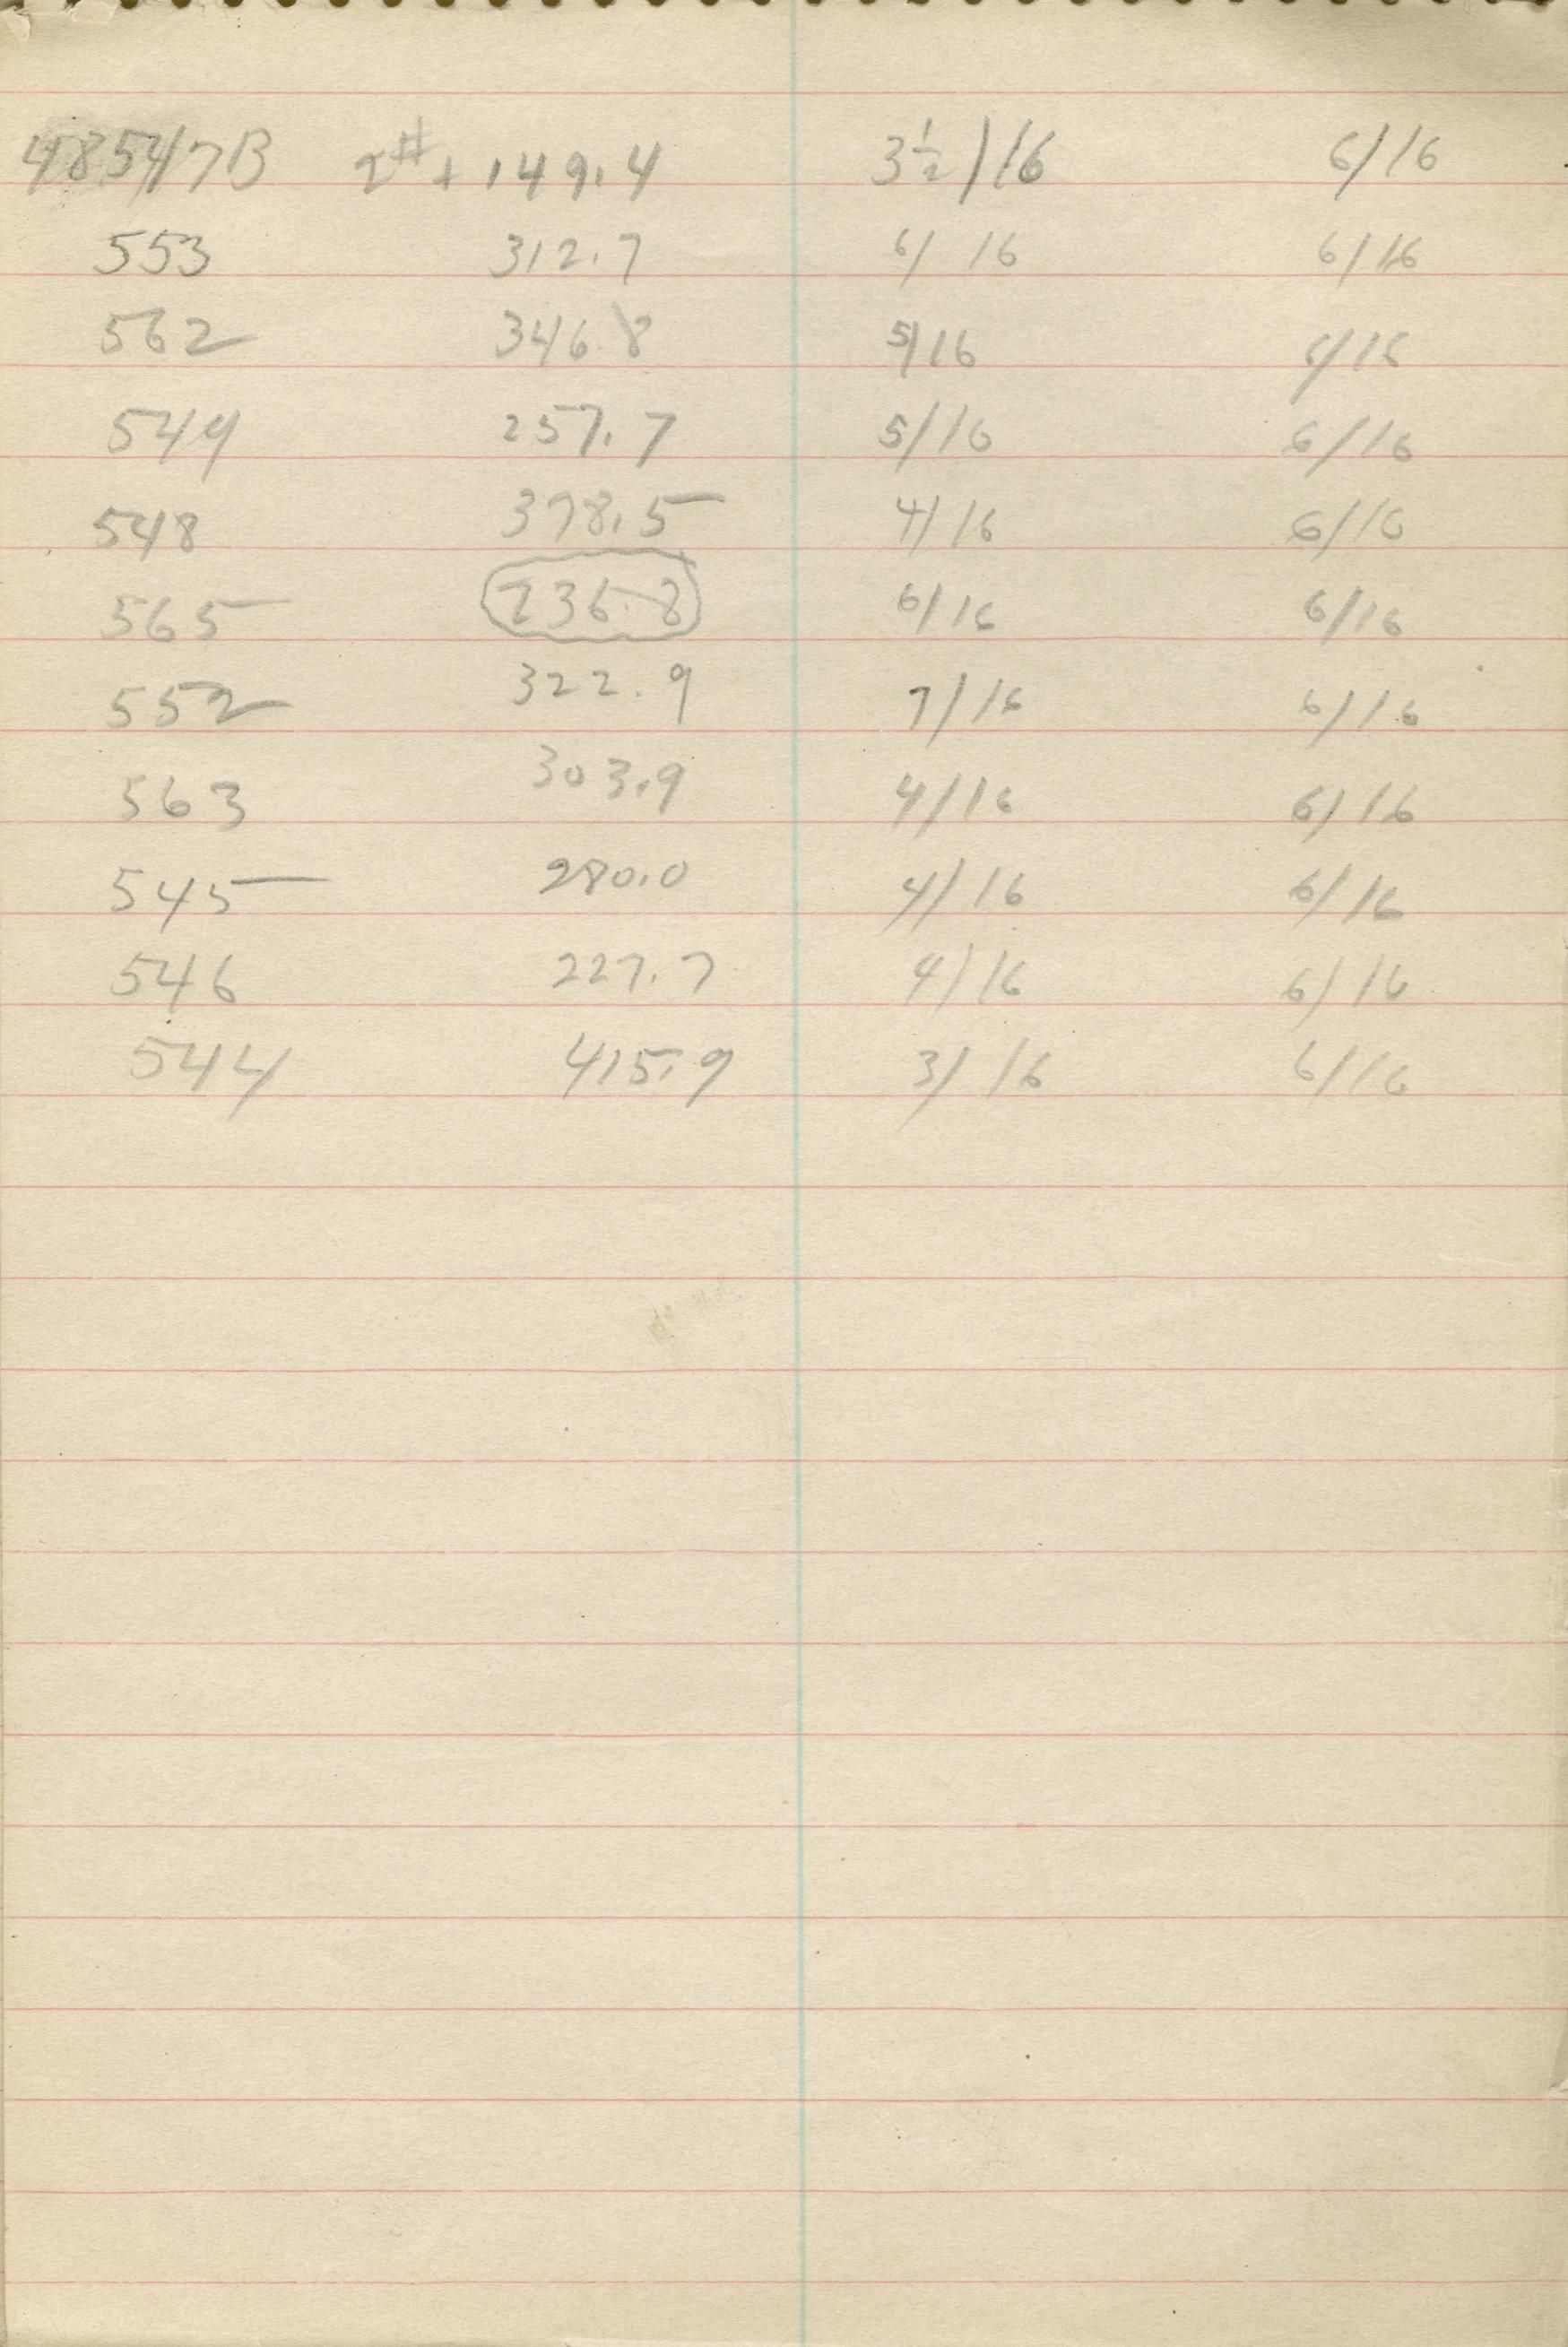 48547B 2# + 149.4 3 1/2 / 16 6/16
553 312.7 6/16 6/16
562 346.8 5/16 6/16
549 257.7 5/16 6/16
548 378.5 4/16 6/16
565 236.8 6/16 6/16
552 322.9 7/16 6/16
563 303.9 4/16 6/16
545 280.0 4/16 6/16
546 227.7 4/16 6/16
544 415.9 3/16 6/16